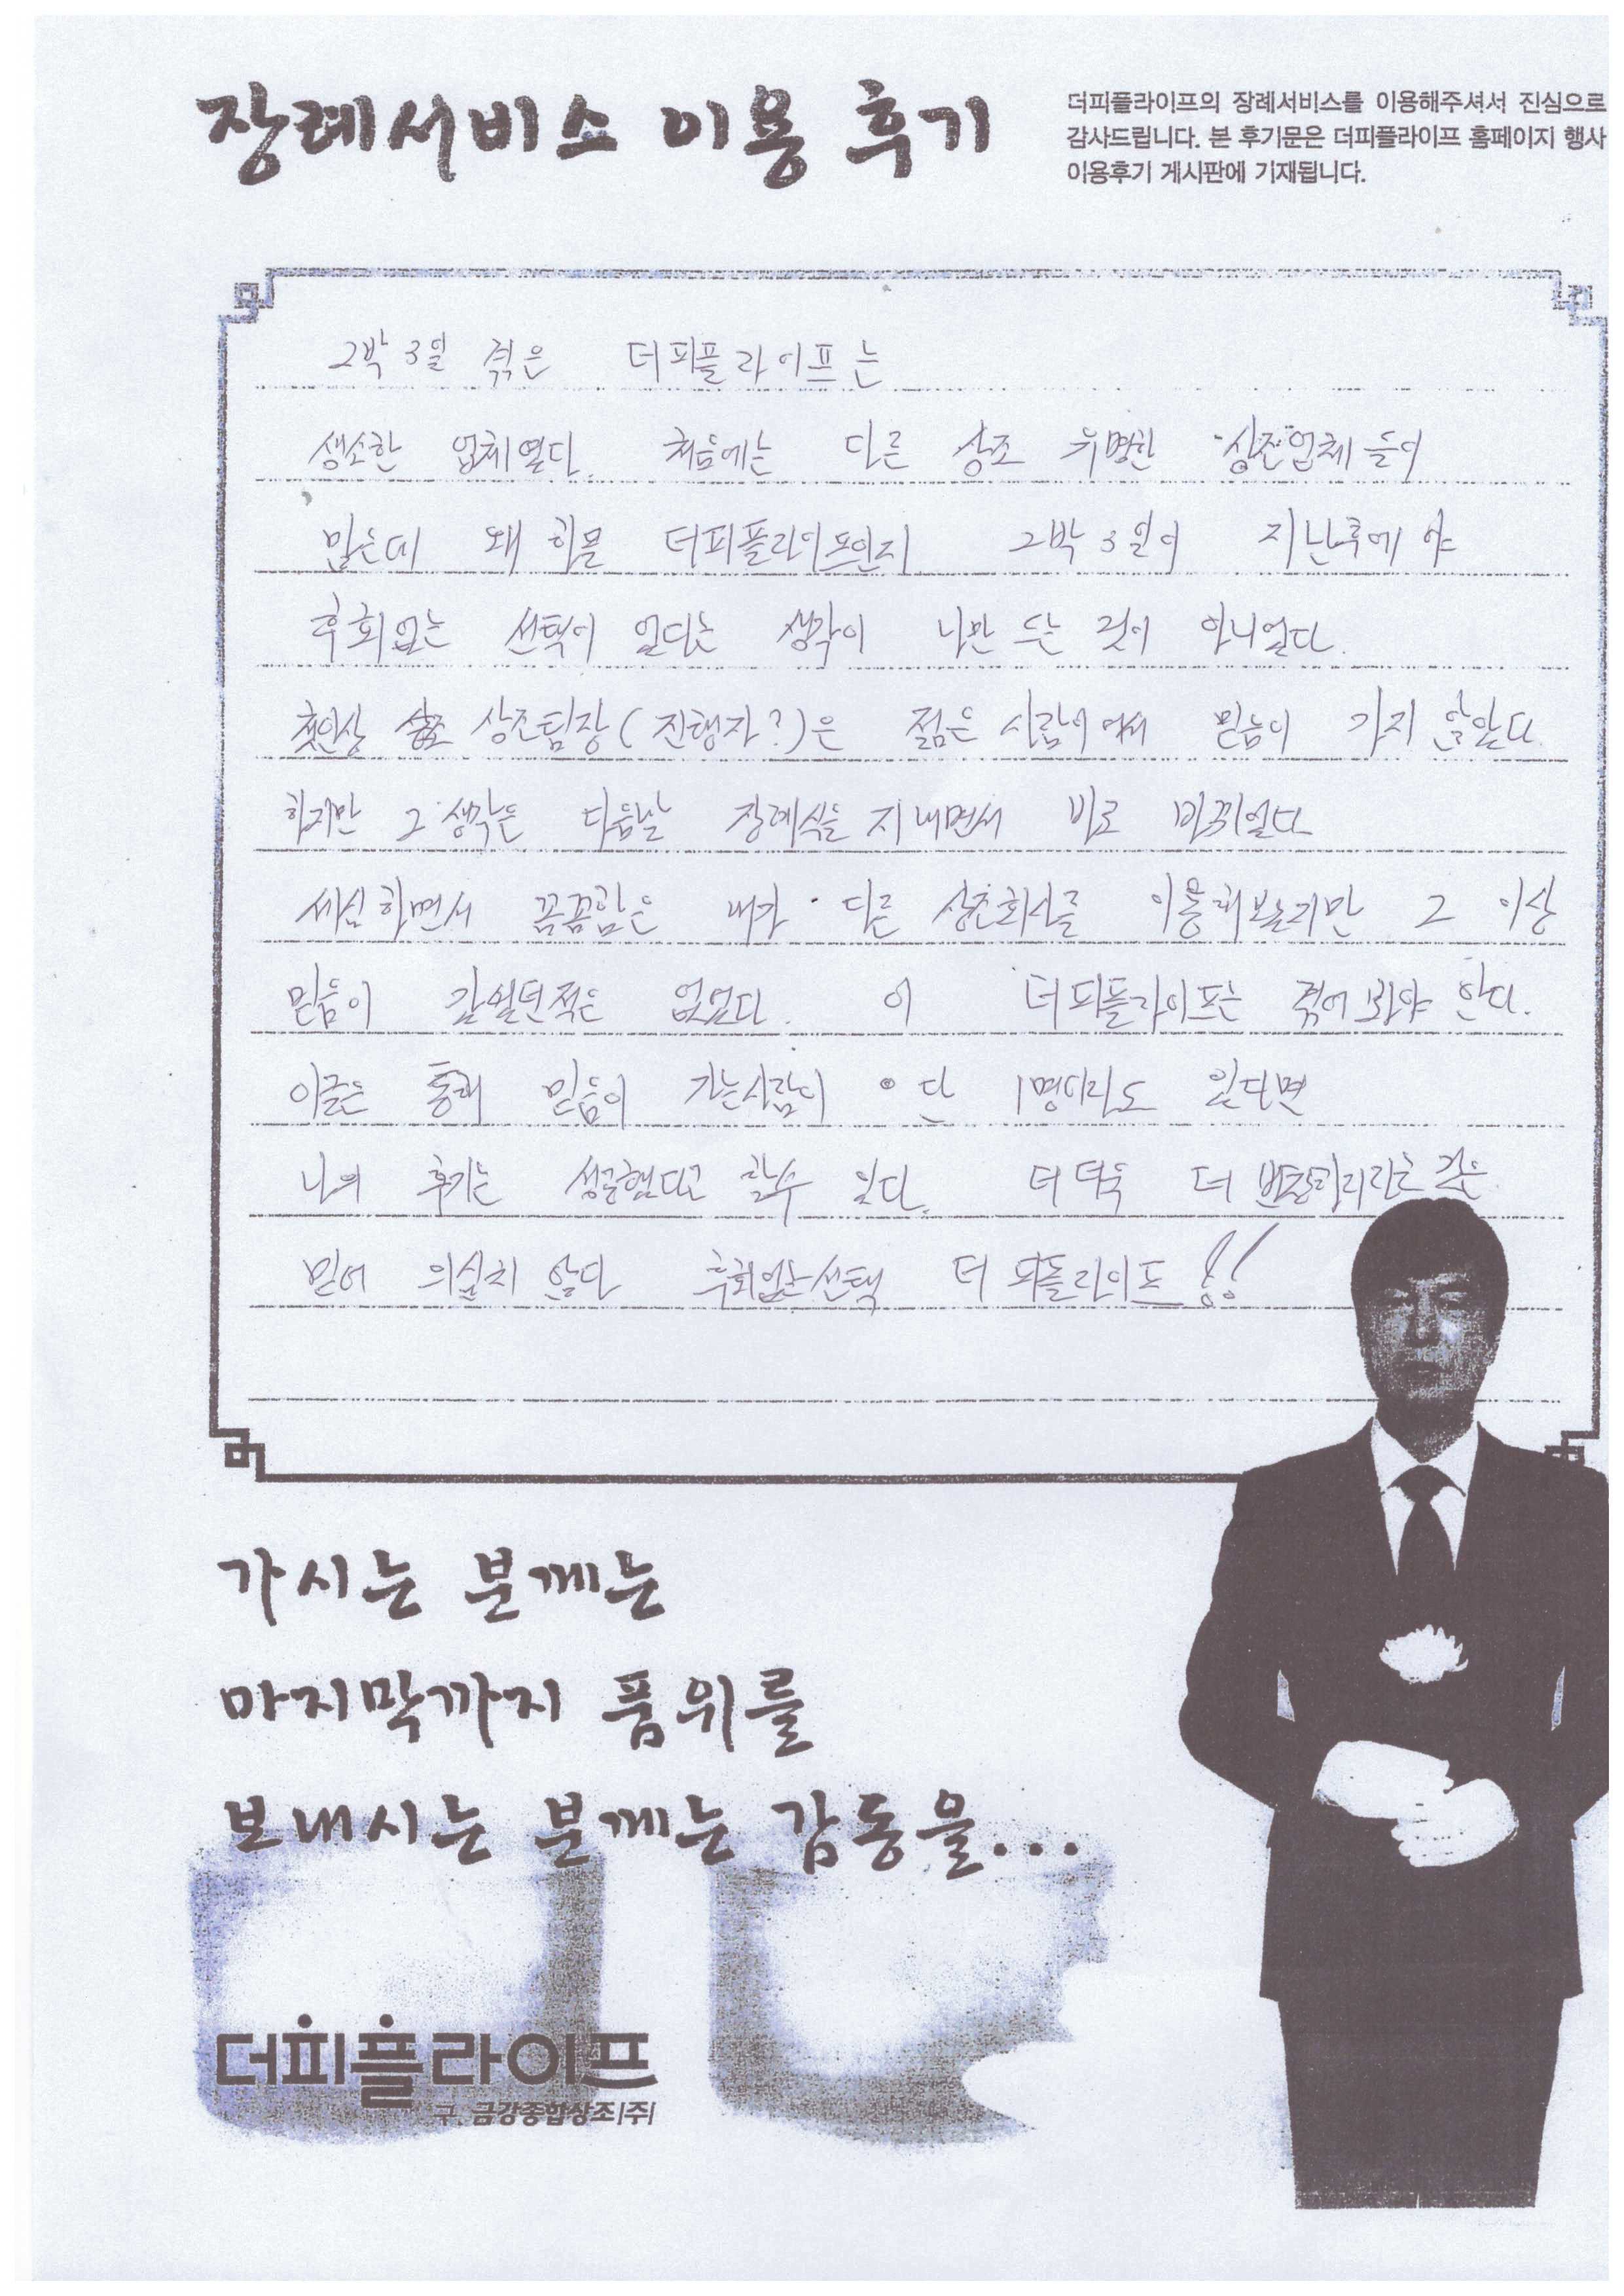 장례서비스 이용 후기
더피플라이프의 장례서비스를 이용해주셔서 진심으로
감사드립니다. 본 후기문은 더피플라이프 홈페이지 행사
이용후기 게시판에 기재됩니다.
2박 3일 겪은 더피플라이프는
생소한 업체였다. 처음에는 다른 상조 유명한 상조업체들이
많은데 왜 하필 더피플라이프인지 2박 3일이 지난후에야
후회없는 선택이 었다는 생각이 나만 드는 것이 아니었다.
첫인상 상조팀장(진행자?)은 젊은 사람이여서 믿음이 가지 않았다.
하지만 그 생각은 다음날 장례식을 지내면서 바로 바뀌었다
세심하면서 꼼꼼함은 내가 다른 상조회사를 이용해보았지만 그 이상
믿음이 갔었던적은 없었다. 이 더피플라이프는 겪어봐야 한다.
이글을 통해 믿음이 가는사람이 단 1명이라도 있다면
나의 후기는 성공했다고 할수 있다. 더덕욱 더
믿어 의심치 않다 후회없는선택 더피플라이프!!
가시는 분께는
마지막까지 품위를
보내시는 분께는 감동을...
더피플라이프
구. 금강종합상조(주)